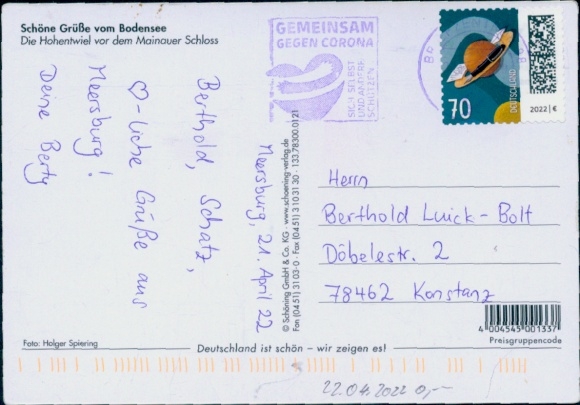 Schöne Grüße vom Bodensee
Die Hohentwiel vor dem Mainauer Schloss
GEMEINSAM
GEGEN CORONA
SICH SELBST
UND ANDERE
SCHÜTZEN
70
DEUTSCHLAND
2022 | €
Meersburg, 21. April 22
Berthold, Schatz,
♡-liche Grüße aus
Meersburg!
Deine Berty
© Schöning GmbH & Co. KG · www.schoening-verlag.de
Fon (04 51) 31 03-0 · Fax (04 51) 3 10 31 30 · 133.78300.0121
Herrn
Berthold Luick-Bolt
Döbelestr. 2
78462 Konstanz
4 004545 001337
Preisgruppencode
Foto: Holger Spiering
Deutschland ist schön – wir zeigen es!
22.04.2022 0,-